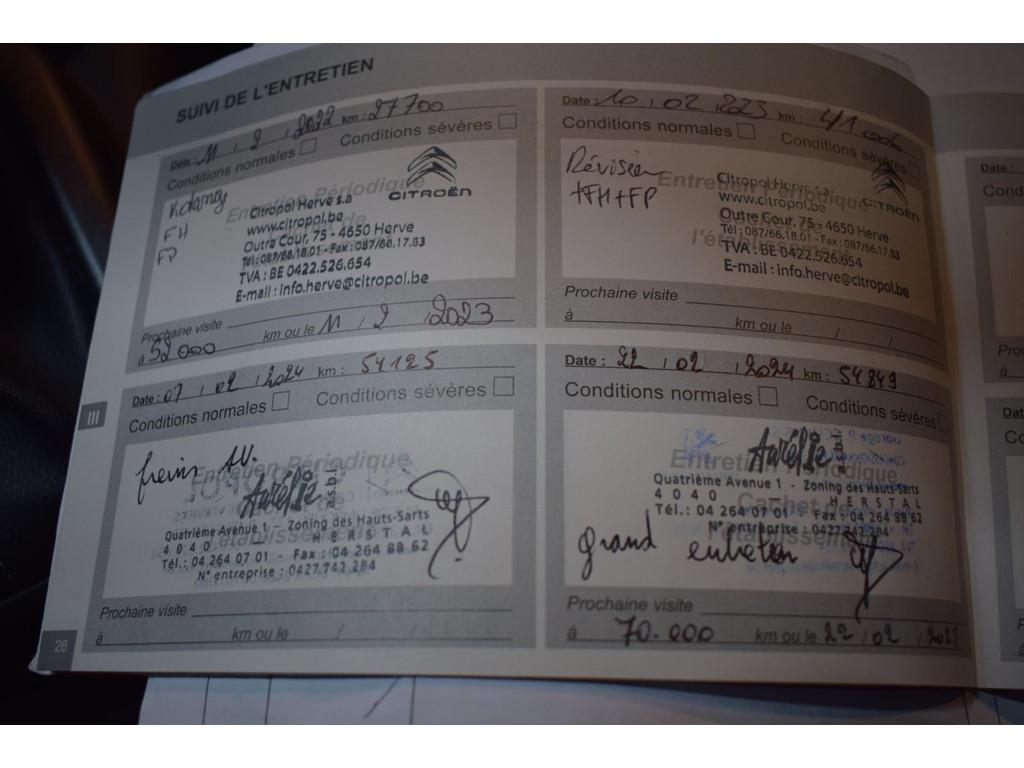 SUIVI DE L'ENTRETIEN
Date : 11 / 2 / 2022 km : 27700
Conditions normales Conditions sévères
Entretien Périodique
CITROËN
FH
FP
Citropol Herve s.a
www.citropol.be
Outre Cour, 75 - 4650 Herve
Tél : 087/66.18.01 - Fax : 087/66.17.83
TVA : BE 0422.526.654
E-mail : info.herve@citropol.be
Prochaine visite
à 52000 km ou le 11 / 2 / 2023
Date : 10 / 02 / 223 km : 41 006
Conditions normales Conditions sévères
Révision
+FH+FP
Entretien Périodique
l'établissement
CITROËN
Citropol Herve s.a
www.citropol.be
Outre Cour, 75 - 4650 Herve
Tél : 087/66.18.01 - Fax : 087/66.17.83
TVA : BE 0422.526.654
E-mail : info.herve@citropol.be
Prochaine visite
à km ou le / /
Date : 07 / 02 / 2024 km : 54125
Conditions normales Conditions sévères
freins AV.
Entretien Périodique
l'établissement
Aurélie a.s.b.l
Quatrième Avenue 1 - Zoning des Hauts-Sarts
4040 HERSTAL
Tél. : 04 264 07 01 Fax : 04 264 88 62
N° entreprise : 0427.742.284
Prochaine visite
à km ou le / /
Date : 22 / 02 / 2024 km : 54849
Conditions normales Conditions sévères
Entretien Périodique
Cachet de
l'établissement
Aurélie a.s.b.l
Quatrième Avenue 1 - Zoning des Hauts-Sarts
4040 HERSTAL
Tél. : 04 264 07 01 Fax : 04 264 88 62
N° entreprise : 0427.742.284
grand entretien
Prochaine visite
à 70.000 km ou le 22 / 02 / 2025
III
26
Date :